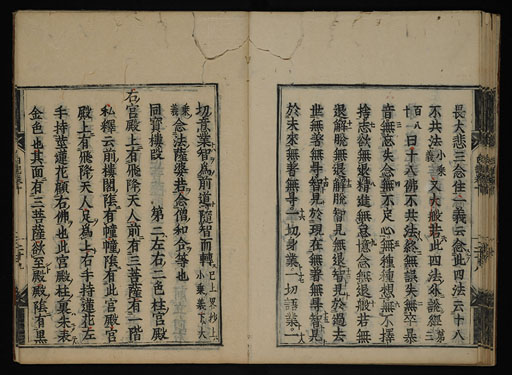 長大悲三念住一義云念此四法云十八
不共法小乘義又大般若此四法外說經第三
百八十一曰十八佛不共法終無誤失無卒暴
音無忘失念無不定心無種種想無不擇
捨志欲無退精進無怠憶念無退般若無
退解脫無退解脫智見無退智見於過去
世無著無㝵智見於現在無著無㝵智見
於未來無著無㝵一切身業一切語業一
切意業智為前道隨智而轉已上異抄上小乘義下大
乘義念法薩婆若念僧和合等也
同寶樓段 第二左右二色柱宮殿
右宮殿上有飛降天人前有三菩薩有一階
私釋云前樓閣隂有幢幡隂有此宮殿宮
殿上有飛降天人足為上右手持蓮花左
手持莖蓮花顧右佛也此宮殿柱裏朱表
金色也其面有三菩薩欲至殿殿隂有黑